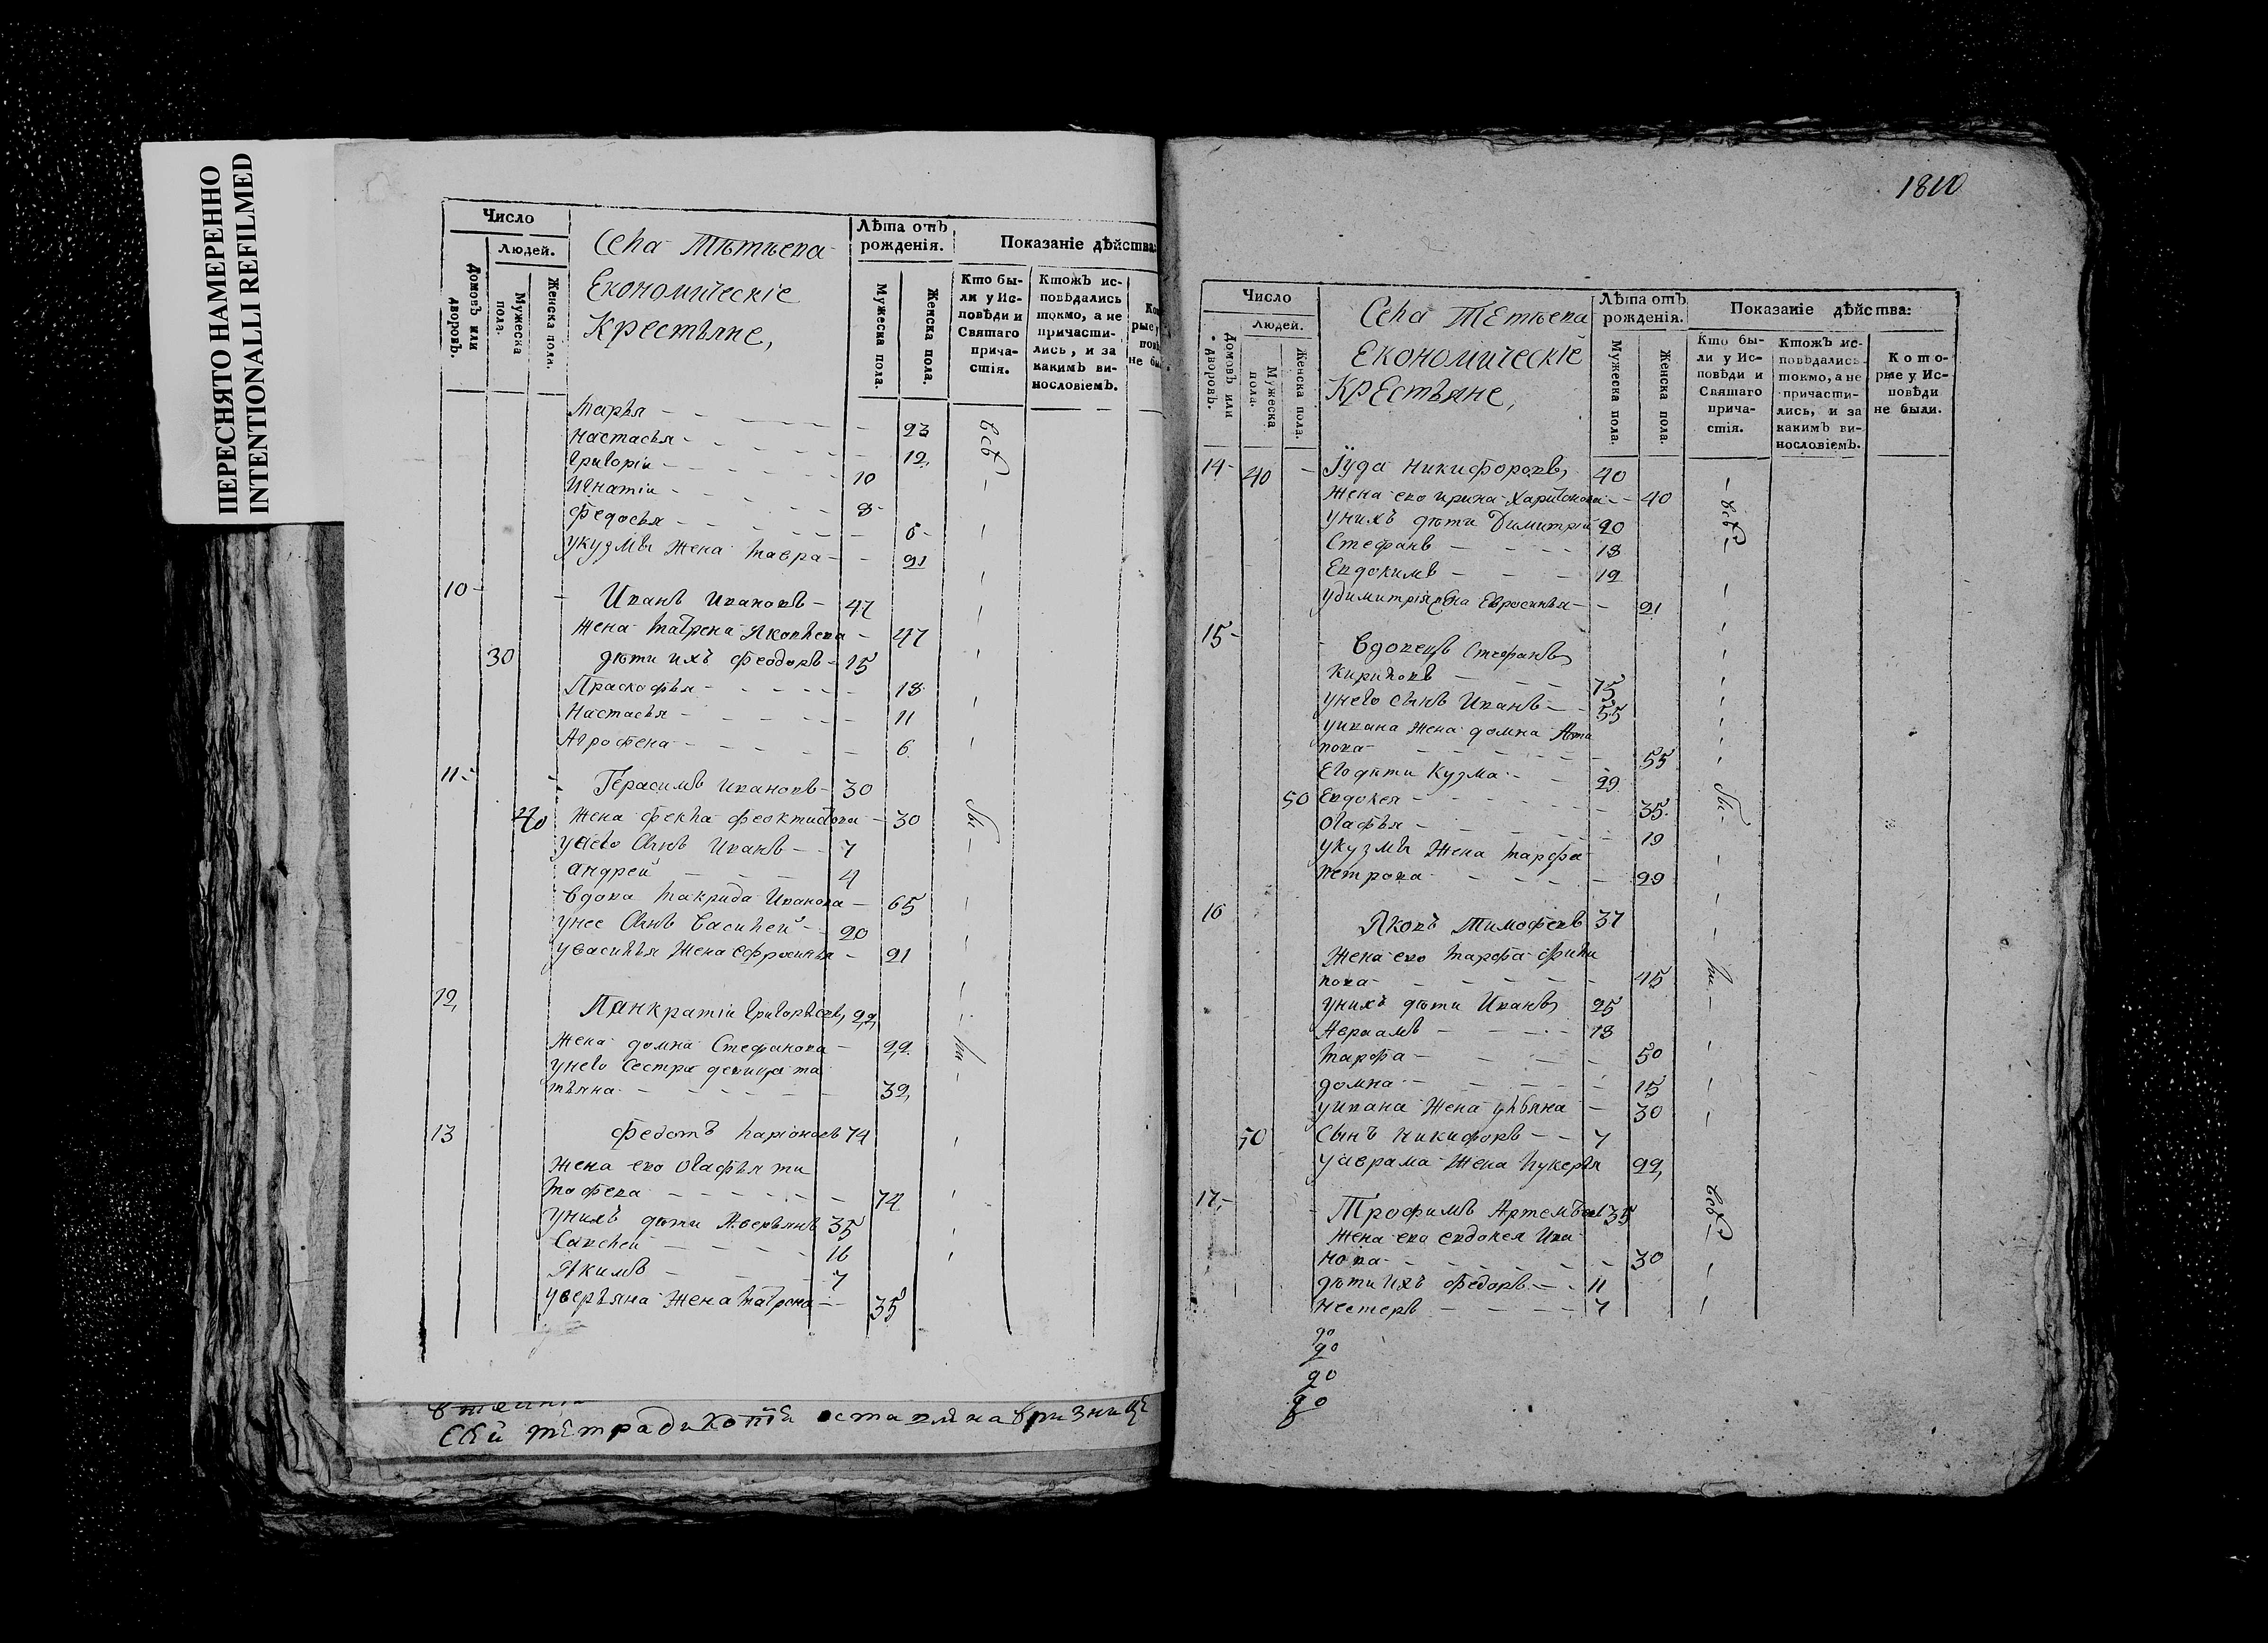 ПЕРЕСНЯТО НАМЕРЕННО
INTENTIONALLI REFILMED
Число
Людей.
Домовъ или дворовъ.
Мужеска пола.
Женска пола.
Села Тѣтѣева
Економическіе
Крестьяне,
Лѣта отъ рожденія.
Мужеска пола.
Женска пола.
Показаніе дѣйства:
Кто бы-
ли у Ис-
повѣди и
Святаго
прича-
стія.
Ктожъ ис-
повѣдались
токмо, а не
причасти-
лись, и за
какимъ ви-
нословіемъ.
Марья - 23
Настасья - 12
Григоріи - 10
Игнатіи - 8
Федосья - 6
укузмы жена Мавра - 21
10 - Иванъ Ивановъ - 47
жена Матрена Яковлева - 47
30 дѣти ихъ Феодоръ - 15
Праскофья - 18
Настасья - 11
Агрофена - 6
11 - Герасимъ Ивановъ - 30
40 жена Фекла Феоктистова - 30
унево сынъ Иванъ - 7
Андрей - 4
вдова Маврида Иванова - 65
унее сынъ Василей - 20
уВасилья жена Ефросинья - 21
12, Панкратіи Григорьевъ, 22,
жена домна Стефанова - 22
унево сестра девица та
тьяна - 32,
13 Федотъ Ларіоновъ 74
жена ево Огафья ти
мофева - 74
унихъ дѣти Аверьянъ 35
Савелей - 16
Якимъ - 7
уверьяна жена Матрона - 35
сей тетради копіи оставлена вризнице
1810
Число
Людей.
Домовъ или дворовъ.
Мужеска пола.
Женска пола.
Села Тетѣева
Економическіе
Крестьяне,
Лѣта отъ рожденія.
Мужеска пола.
Женска пола.
Показаніе дѣйства:
Кто бы-
ли у Ис-
повѣди и
Святаго
прича-
стія.
Ктожъ ис-
повѣдались
токмо, а не
причасти-
лись, и за
какимъ ви-
нословіемъ.
Кото-
рые у Ис-
повѣди
не были.
14 - 40 - Іуда Никифоровъ, 40
жена ево Ирина Харитонова - 40
унихъ дѣти Димитріи 20
Стефанъ - 18
Евдокимъ - 12
удимитрія жена Евросинья - 21
15 - вдовецъ Стефанъ
Кириловъ - 75
унево сынъ Иванъ - 55
уивана жена домна Анта
нова - 55
Егодѣти Кузма - 29
50 Евдокея - 35
Огафья - 19
укузмы жена Марфа
петрова - 29
16 Яковъ Тимофеевъ 37
жена ево Марфа Фили
пова - 45
унихъ дѣти Иванъ, 25
Авраамъ - 18
Марфа - 50
домна - 15
уивана жена ульяна - 30
50 сынъ Никифоръ - 7
уаврама жена Лукерья 22,
17, - Трофимъ Артемьевъ 35
жена ево евдокея Ива
нова - 30
дѣти ихъ Федоръ - 11
Нестеръ - 7